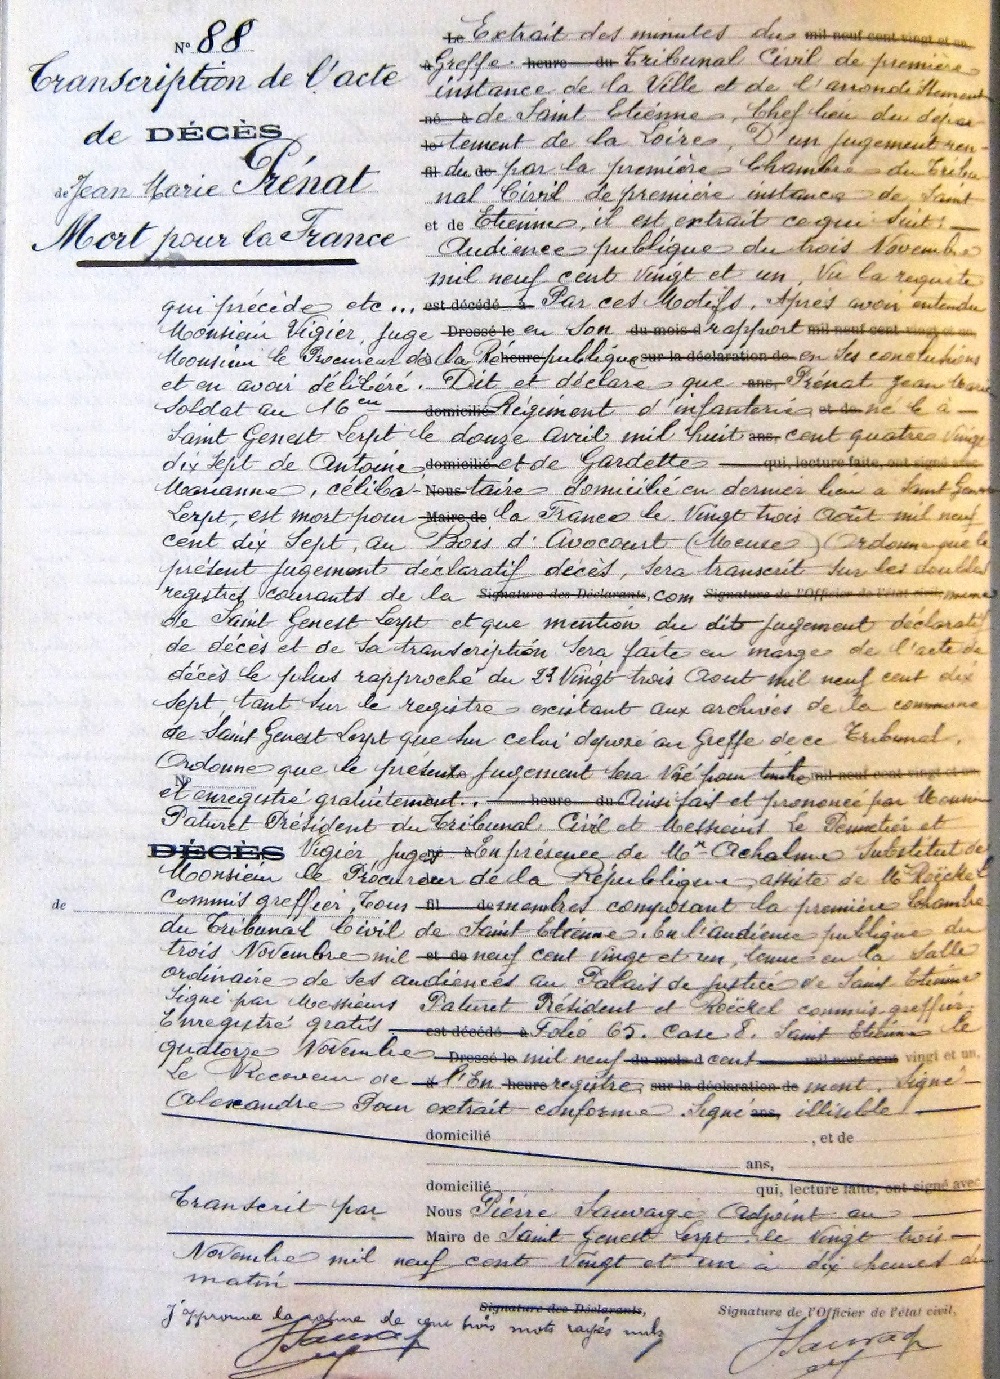 N° 88
Transcription de l'acte
de DÉCÈS
de Jean Marie Prénat
Mort pour la France
Le Extrait des minutes du mil neuf cent vingt et un,
à Greffe heure du Tribunal Civil de première
instance de la Ville et de l'arrondissement
né à de Saint Etienne, Chef lieu du dépar-
le tement de la Loire, D'un jugement ren-
fil du de par la première Chambre du Tribu
nal Civil de première instance de Saint
et de Etienne, il est extrait ce qui suit :
Audience publique du trois Novembre
mil neuf cent vingt et un, Vu la requête
qui précède etc... est décédé à Par ces Motifs, Après avoir entendu
Monsieur Vigier, Juge Dressé le en son du mois d rapport mil neuf cent vingt et un
Monsieur le Procureur de la Ré heure publique sur la déclaration de en ses conclusions
et en avoir délibéré. Dit et déclare que ans, Prénat Jean Marie
Soldat au 16em domicilié Régiment d'infanterie et de né le à
Saint Genest Lerpt le douze Avril mil huit ans, cent quatre vingt
dix sept de Antoine domicilié et de Gardette qui, lecture faite, ont signé avec
Marianne, céliba- Nous taire domicilié en dernier lieu à Saint Genest
Lerpt, est mort pour Maire de la France le vingt trois Août mil neuf
cent dix sept, au Bois d'Avocourt (Meuse) Ordonne que le
présent jugement déclaratif décès, sera transcrit sur les doubles
registres courants de la Signature des Déclarants, com Signature de l'Officier de l'état civil, mune
de Saint Genest Lerpt et que mention du dit jugement déclaratif
de décès et de sa transcription sera faite en marge de l'acte de
décès le plus rapproché du 23 Vingt trois Aout mil neuf cent dix
sept tant sur le registre existant aux archives de la commune
de Saint Genest Lerpt que sur celui déposé au Greffe de ce Tribunal.
Ordonne que le present Le jugement sera Visé pour timbre mil neuf cent vingt et un
N°
et enregistré gratuitement.. heure du Ainsi fait et prononcé par Monsieur
Paturet Président du Tribunal Civil et Messieurs Le Pennetier et
DÉCÈS Vigier Juges né à En présence de Mr Achalme Substitut de
Monsieur le Procureur de la République, assisté de Mr Roëckel
de commis greffier, Tous fil de membres composant la première Chambre
du Tribunal Civil de Saint Etienne. En l'audience publique du
trois Novembre mil et de neuf cent vingt et un, tenue en la Salle
ordinaire de ses audiences au Palais de Justice de Saint Etienne
Signé par Messieurs Paturet Président et Roëckel commis greffier.
Enregistré gratis. est décédé à Folio 65. Case 8. Saint Etienne le
quatorze Novembre Dressé le mil neuf du mois d cent mil neuf cent vingt et un.
Le Receveur de à l'En heure registre sur la déclaration de ment. Signé
Alexandre Pour extrait conforme Signé ans, illisible
domicilié , et de
ans,
domicilié qui, lecture faite, ont signé avec
Transcrit par Nous Pierre Sauvage Adjoint au
Maire de Saint Genest Lerpt le vingt trois
Novembre mil neuf cent vingt et un à dix heures du
matin
J'approuve la rature de trois mots rayés nuls
Signature des Déclarants,
Signature de l'Officier de l'état civil,